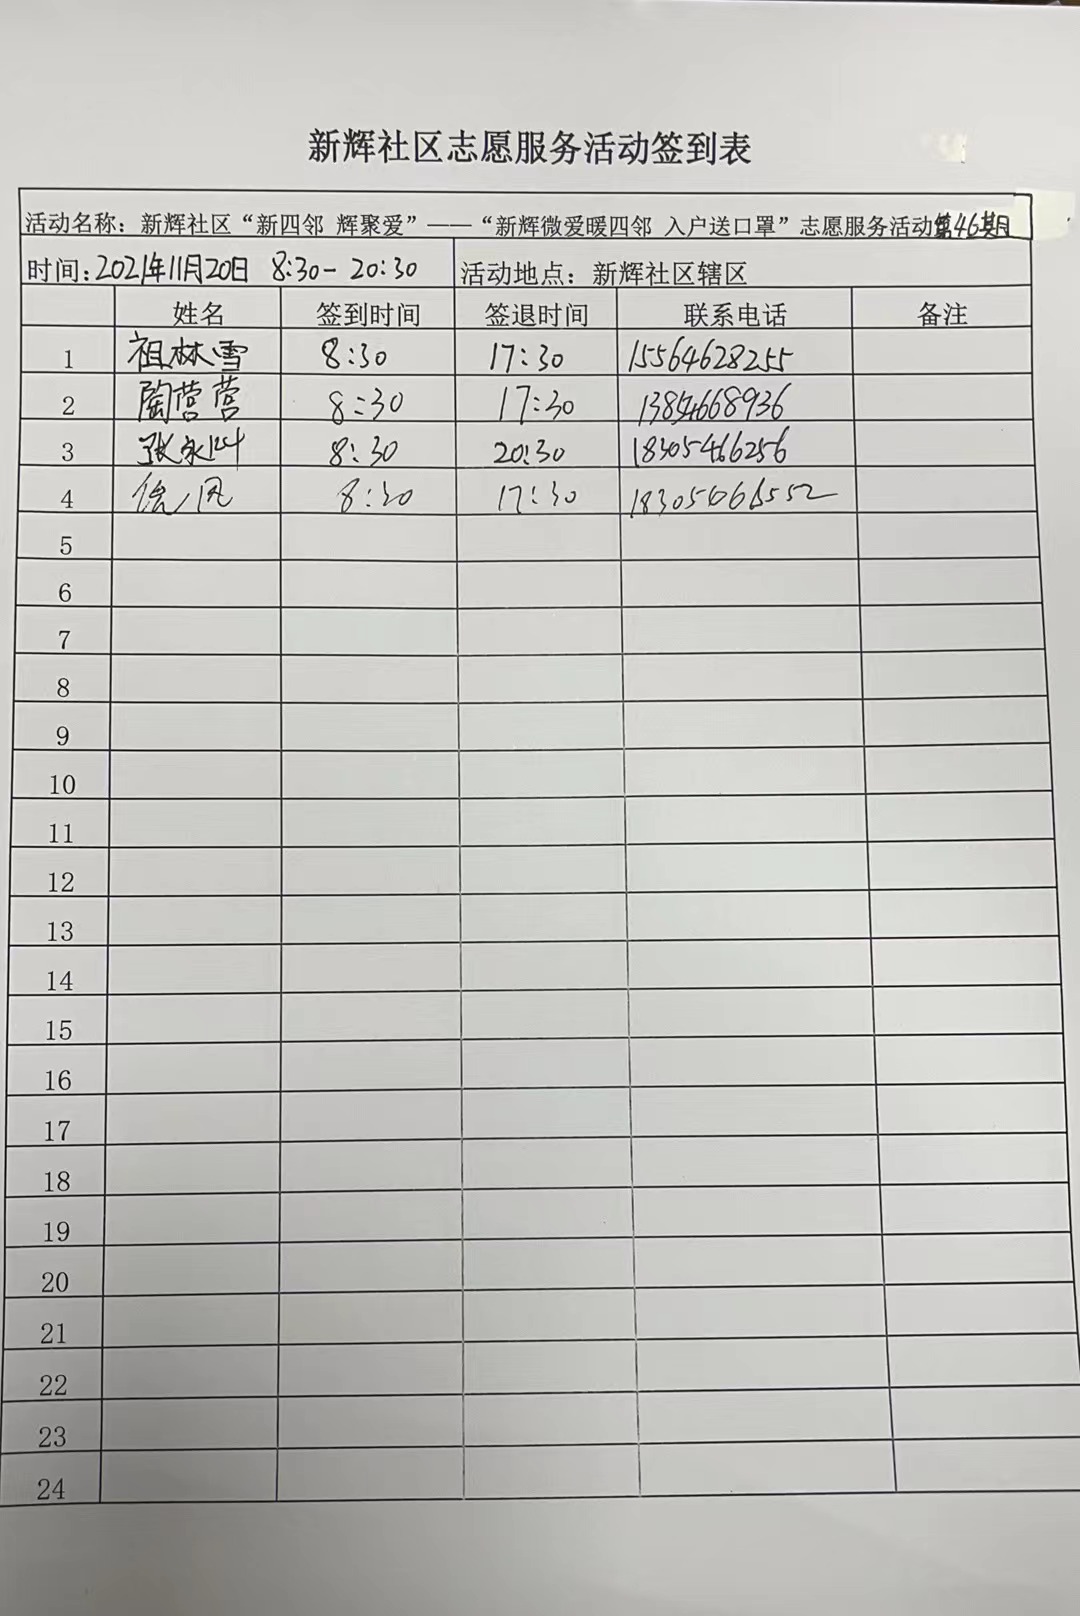 新辉社区志愿服务活动签到表
活动名称：新辉社区“新四邻 辉聚爱”——“新辉微爱暖四邻 入户送口罩”志愿服务活动第46期
时间：2021年11月20日 8:30-20:30 活动地点：新辉社区辖区
姓名 签到时间 签退时间 联系电话 备注
1 祖林雪 8:30 17:30 15564628255
2 陶营营 8:30 17:30 13854668936
3 张永 8:30 20:30 18305466256
4 徐 8:30 17:30
5
6
7
8
9
10
11
12
13
14
15
16
17
18
19
20
21
22
23
24